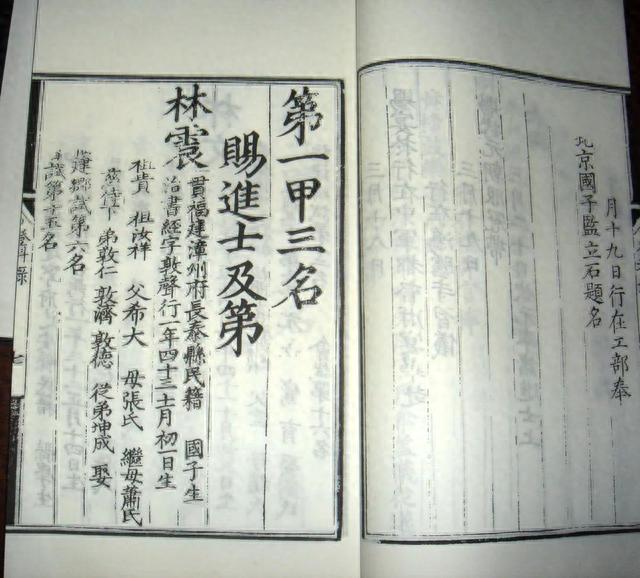 月十九日行在工部奉
北京國子監立石題名
第一甲三名
賜進士及第
林震
貫福建漳州府長泰縣民籍 國子生
治書經字敦聲行一年四十三七月初一日生
祖貴 祖汝祥 父希大 母張氏 繼母蕭氏
侍下 弟敦仁 敦濟 敦德 從弟坤成 娶
建鄉試第六名
試第十五名
登科錄
七